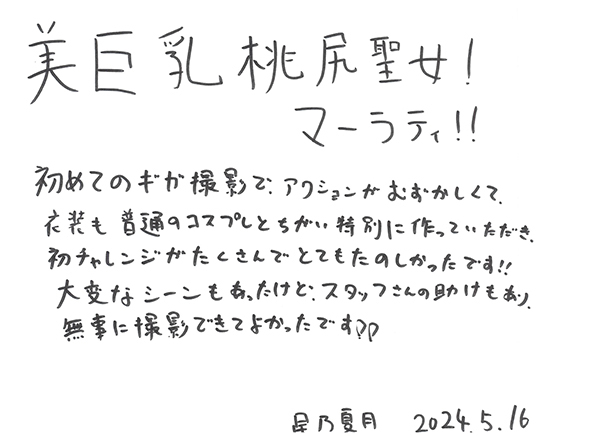 美巨乳桃尻聖女!
マーラティ!!
初めてのギガ撮影で、アクションがむずかしくて、
衣装も普通のコスプレとちがい特別に作っていただき、
初チャレンジがたくさんでとてもたのしかったです!!
大変なシーンもあったけど、スタッフさんの助けもあり、
無事に撮影できてよかったです♡♡
星乃夏月 2024.5.16